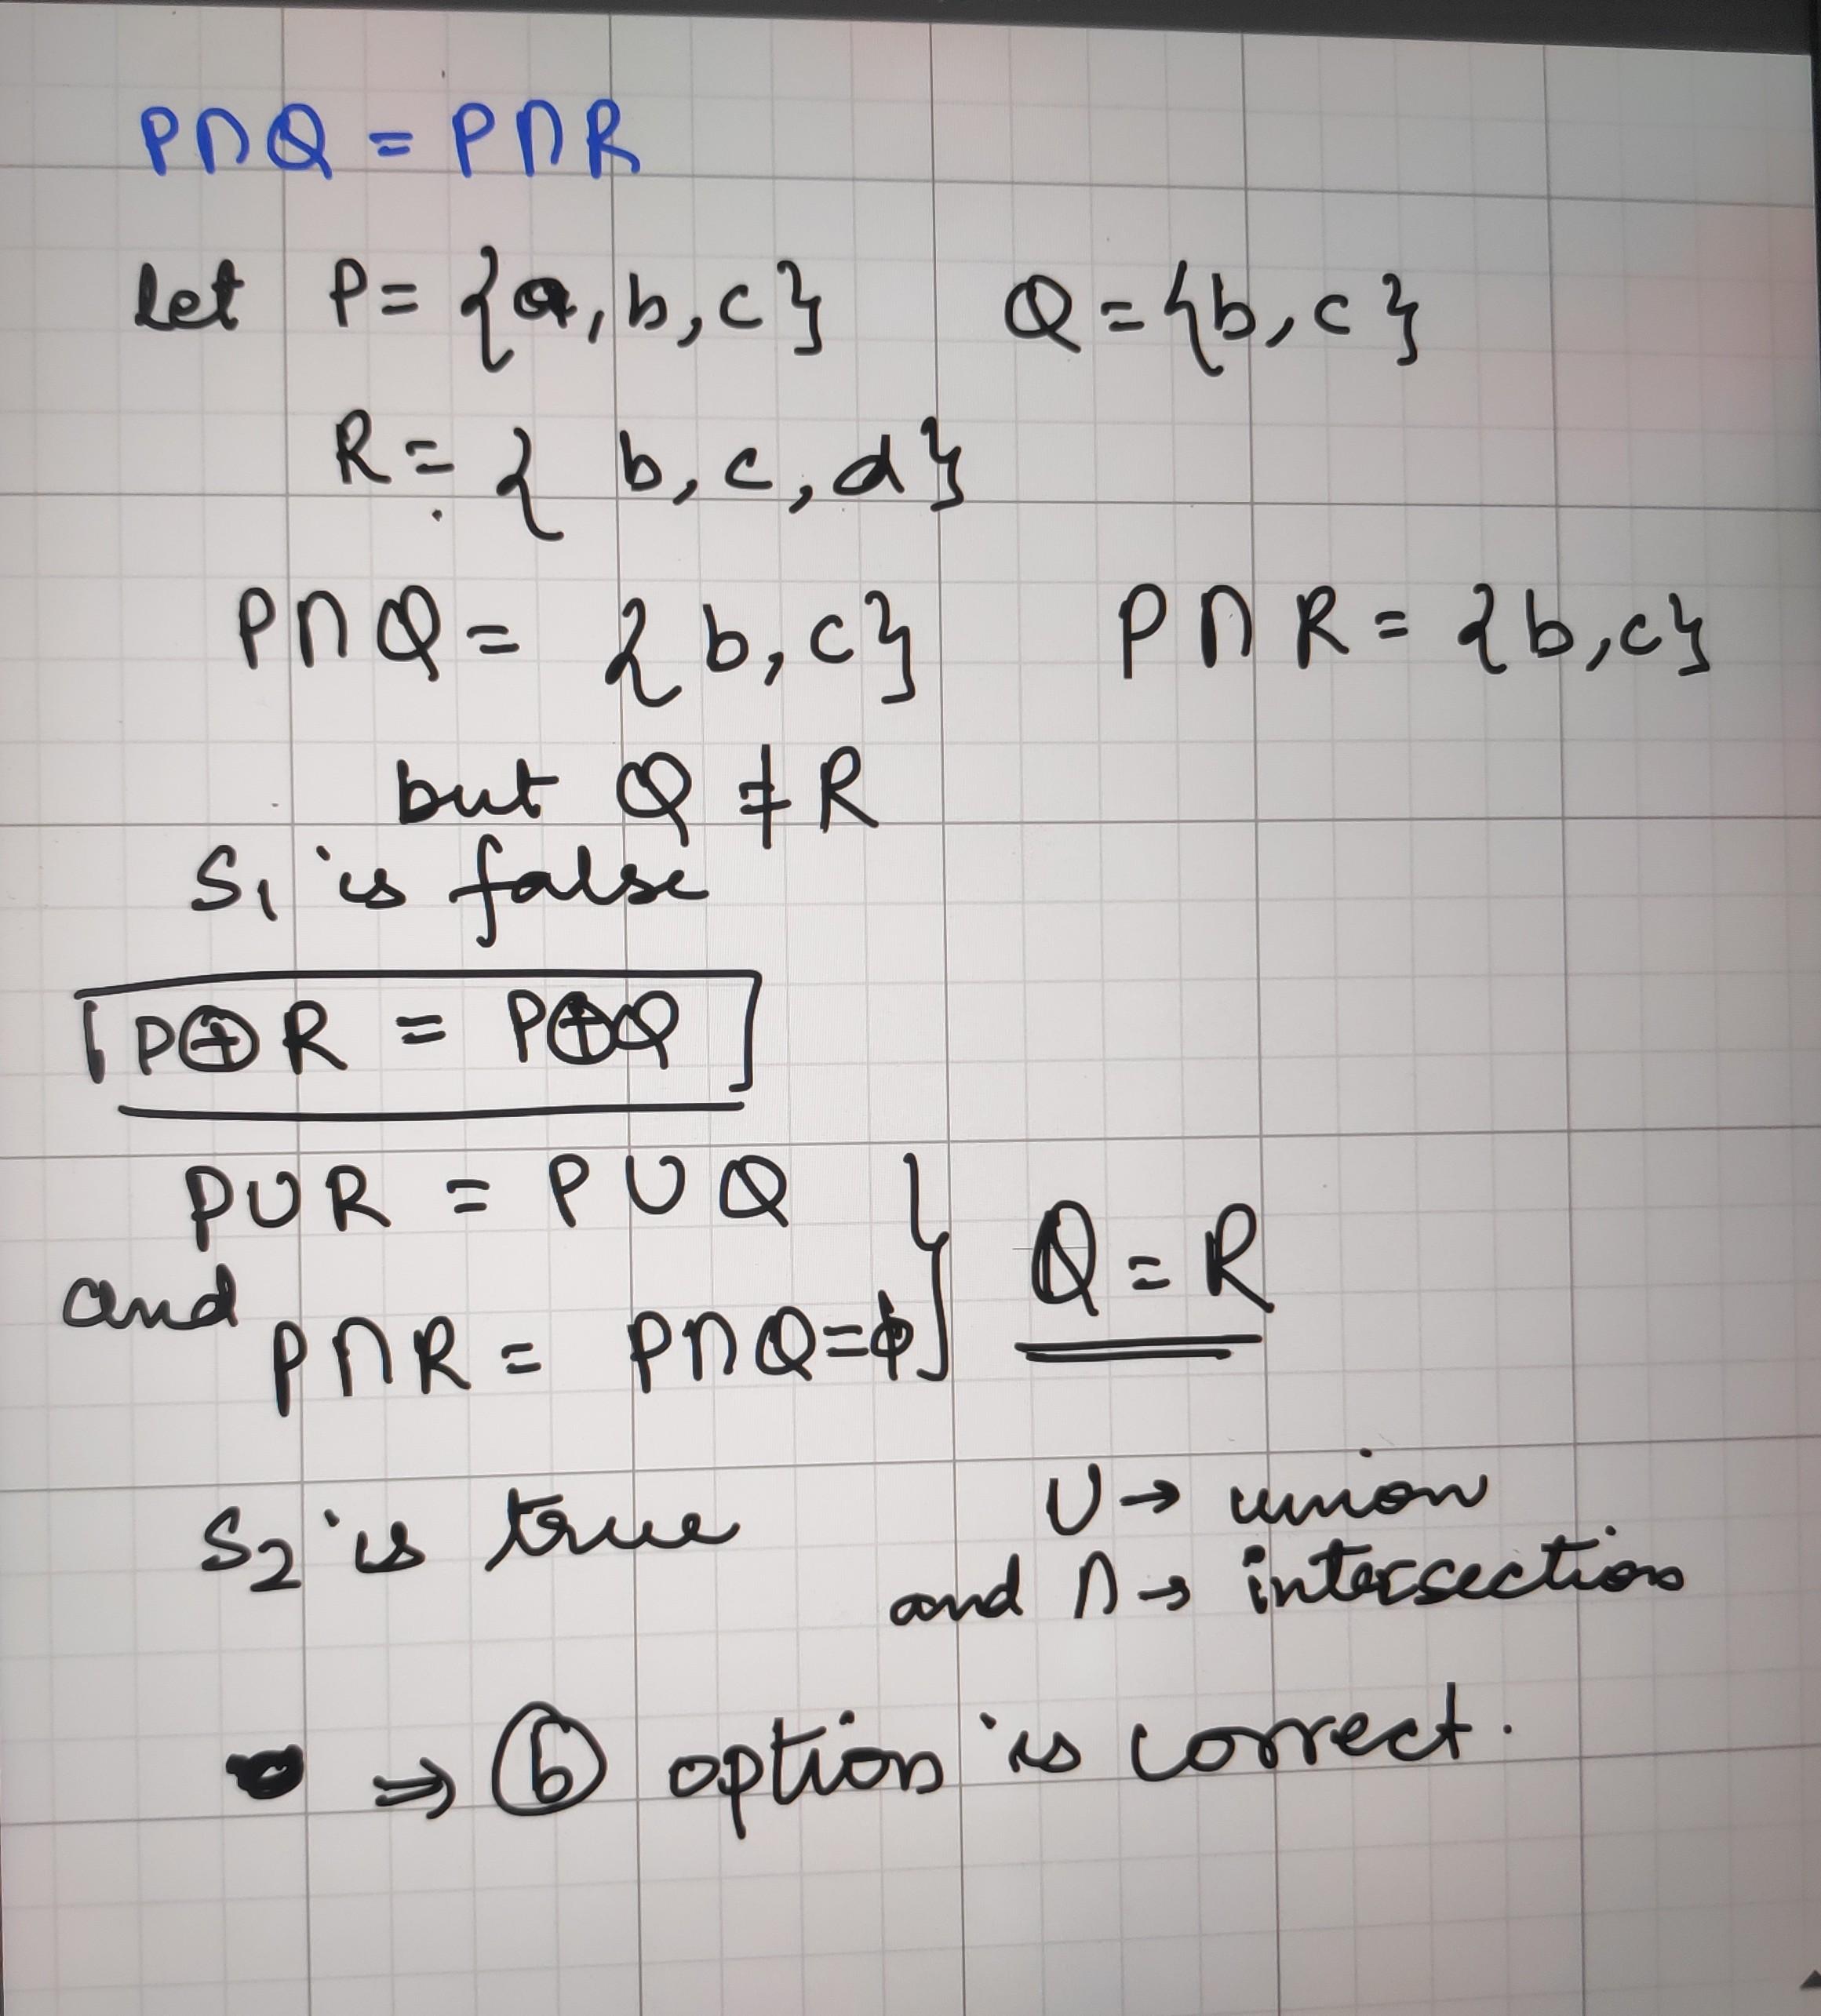 P∩Q = P∩R
let P = {a, b, c} Q = {b, c}
R = { b, c, d}
P∩Q = {b, c} P∩R = {b, c}
but Q ≠ R
S1 is false
P⊕R = P⊕Q
P∪R = P∪Q
Q = R
and
P∩R = P∩Q = ϕ
S2 is true
∪→ union
and ∩→ intersection
⇒ ⓑ option is correct.